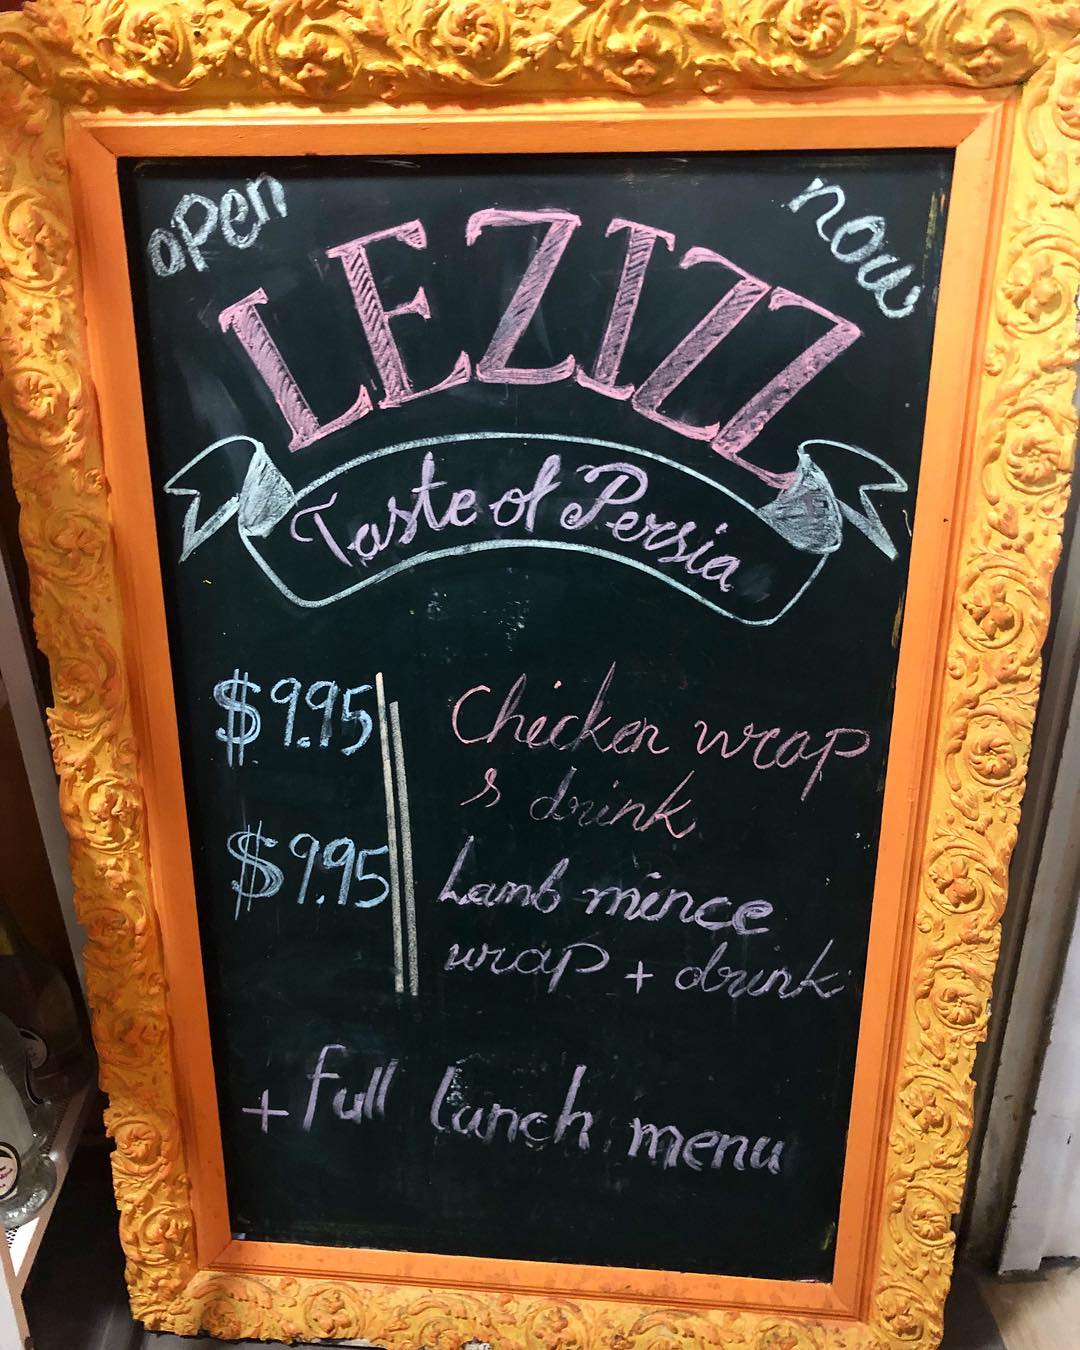 open now
LEZIZZ
Taste of Persia
$9.95 Chicken wrap
& drink
$9.95 Lamb mince
wrap + drink
+ full lunch menu